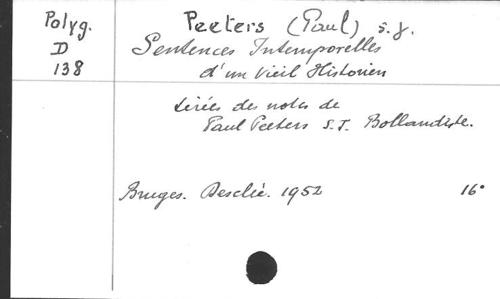 Polyg.
D
138
Peeters (Paul) s.j.
Sentences Intemporelles
d'un vieil Historien
tirées des notes de
Paul Peeters S.J. Bollandiste.
Bruges. Desclée. 1952 16°